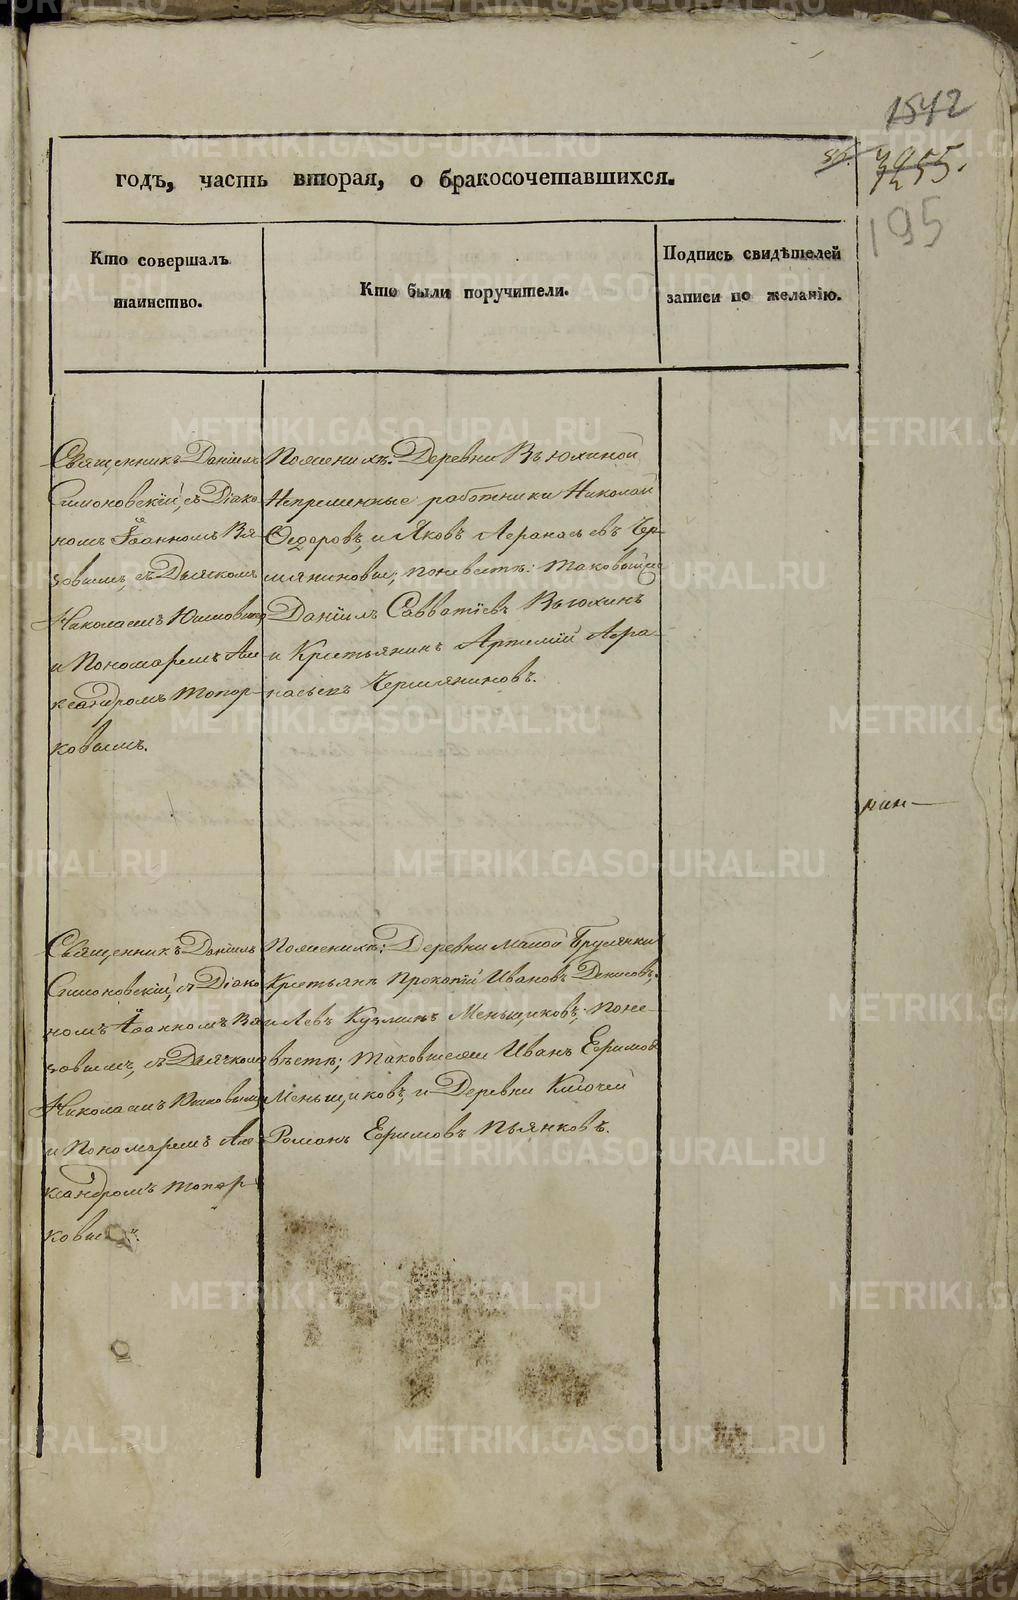 1542
195
годъ, часть вторая, о бракосочетавшихся.
Кто совершалъ
таинство.
Кто были поручители.
Подпись свидѣтелей
записи по желанію.
Священникъ Даніилъ
Симоновскій, съ Діако
номъ Іоанномъ Вя
зовымъ, съ Дьячкомъ
Николаемъ Юшковымъ
и Пономаремъ Але
ксандромъ Топор-
ковымъ.
По женихѣ: Деревни Вьюхиной
Непременные работники Николай
Ѳедоровъ, и Яковъ Аѳанасьевъ Чер
мяниновы, по невестѣ: таковый же
Даніилъ Савватіевъ Вьюхинъ
и Крестьянинъ Артемій Аѳа-
насьевъ Чермяниновъ.
Священникъ Даніилъ
Симоновскій, съ Діако
номъ Іоанномъ Вя
зовымъ, съ Дьячкомъ
Николаемъ Юшковымъ
и Пономаремъ Але
ксандромъ Топор-
ковы
По женихѣ: Деревни Малой Брусянки
Крестьяне Прокопій Ивановъ Денисовъ,
и Левъ Кузминъ Меньщиковъ; по не-
вѣстѣ; таковыеже Иванъ Ефимовъ
Меньщиковъ, и Деревни Ключей
Романъ Ефимовъ Пьянковъ.
METRIKI.GASO-URAL.RU